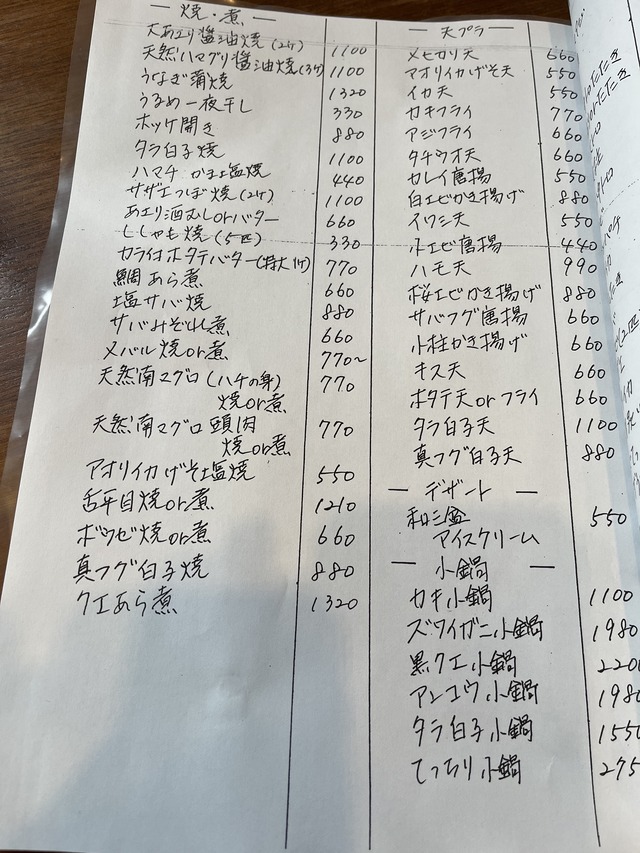 焼・煮
大あさり醤油焼(2ケ) 1100
天然ハマグリ醤油焼(3ケ) 1100
うなぎ蒲焼 1320
うるめ一夜干し 330
ホッケ開き 880
タラ白子焼 1100
ハマチかま塩焼 440
サザエつぼ焼(2ケ) 1100
あさり酒むしorバター 660
ししゃも焼(5匹) 330
カラ付ホタテバター(特大1ケ) 770
鯛あら煮 660
塩サバ焼 880
サバみぞれ煮 660
メバル焼or煮 770~
天然南マグロ(ハチの身) 770
焼or煮
天然南マグロ頭肉 770
焼or煮
アオリイカげそ塩焼 550
舌平目焼or煮 1210
ボウゼ焼or煮 660
真フグ白子焼 880
クエあら煮 1320
天プラ
メヒカリ天 660
アオリイカげそ天 550
イカ天 550
カキフライ 770
アジフライ 660
タチウオ天 660
カレイ唐揚 550
白エビかき揚げ 880
イワシ天 550
小エビ唐揚 440
ハモ天 990
桜エビかき揚げ 880
サバフグ唐揚 660
小柱かき揚げ 660
キス天 660
ホタテ天orフライ 660
タラ白子天 1100
真フグ白子天 880
デザート
和三盆 550
アイスクリーム
小鍋
カキ小鍋 1100
ズワイガニ小鍋 1980
黒クエ小鍋 220
アンコウ小鍋 198
タラ白子小鍋 1550
てっちり小鍋 275